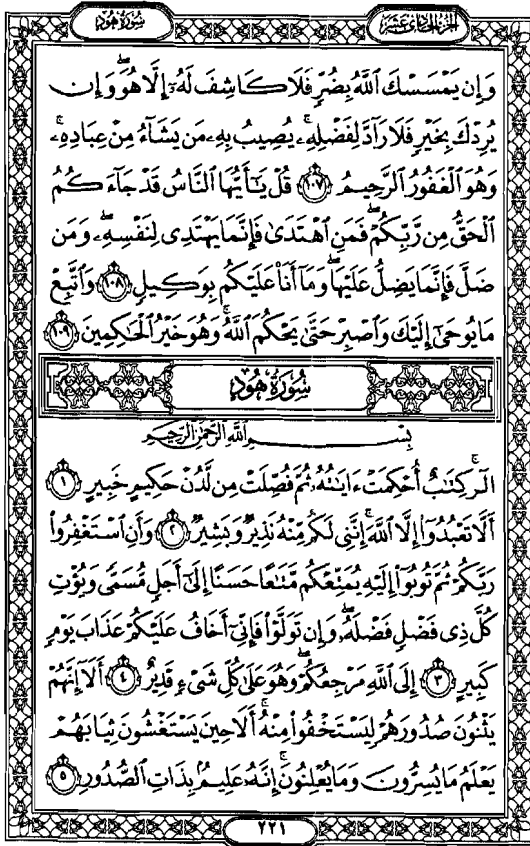 سُورَةُ هُود
الجزء الحادي عشر
وَإِن يَمْسَسْكَ ٱللَّهُ بِضُرٍّ فَلَا كَاشِفَ لَهُۥٓ إِلَّا هُوَۖ وَإِن
يُرِدْكَ بِخَيْرٍ فَلَا رَآدَّ لِفَضْلِهِۦۚ يُصِيبُ بِهِۦ مَن يَشَآءُ مِنْ عِبَادِهِۦۚ
وَهُوَ ٱلْغَفُورُ ٱلرَّحِيمُ ١٠٧ قُلْ يَٰٓأَيُّهَا ٱلنَّاسُ قَدْ جَآءَكُمُ
ٱلْحَقُّ مِن رَّبِّكُمْۖ فَمَنِ ٱهْتَدَىٰ فَإِنَّمَا يَهْتَدِى لِنَفْسِهِۦۖ وَمَن
ضَلَّ فَإِنَّمَا يَضِلُّ عَلَيْهَاۖ وَمَآ أَنَا۠ عَلَيْكُم بِوَكِيلٍ ١٠٨ وَٱتَّبِعْ
مَا يُوحَىٰٓ إِلَيْكَ وَٱصْبِرْ حَتَّىٰ يَحْكُمَ ٱللَّهُۚ وَهُوَ خَيْرُ ٱلْحَٰكِمِينَ ١٠٩
سُورَةُ هُودٍ
بِسْمِ ٱللَّهِ ٱلرَّحْمَٰنِ ٱلرَّحِيمِ
الٓرۚ كِتَٰبٌ أُحْكِمَتْ ءَايَٰتُهُۥ ثُمَّ فُصِّلَتْ مِن لَّدُنْ حَكِيمٍ خَبِيرٍ ١
أَلَّا تَعْبُدُوٓا۟ إِلَّا ٱللَّهَۚ إِنَّنِى لَكُم مِّنْهُ نَذِيرٌ وَبَشِيرٌ ٢ وَأَنِ ٱسْتَغْفِرُوا۟
رَبَّكُمْ ثُمَّ تُوبُوٓا۟ إِلَيْهِ يُمَتِّعْكُم مَّتَٰعًا حَسَنًا إِلَىٰٓ أَجَلٍ مُّسَمًّى وَيُؤْتِ
كُلَّ ذِى فَضْلٍ فَضْلَهُۥۖ وَإِن تَوَلَّوْا۟ فَإِنِّىٓ أَخَافُ عَلَيْكُمْ عَذَابَ يَوْمٍ
كَبِيرٍ ٣ إِلَى ٱللَّهِ مَرْجِعُكُمْۖ وَهُوَ عَلَىٰ كُلِّ شَىْءٍ قَدِيرٌ ٤ أَلَآ إِنَّهُمْ
يَثْنُونَ صُدُورَهُمْ لِيَسْتَخْفُوا۟ مِنْهُۚ أَلَا حِينَ يَسْتَغْشُونَ ثِيَابَهُمْ
يَعْلَمُ مَا يُسِرُّونَ وَمَا يُعْلِنُونَۚ إِنَّهُۥ عَلِيمٌۢ بِذَاتِ ٱلصُّدُورِ ٥
٢٢١